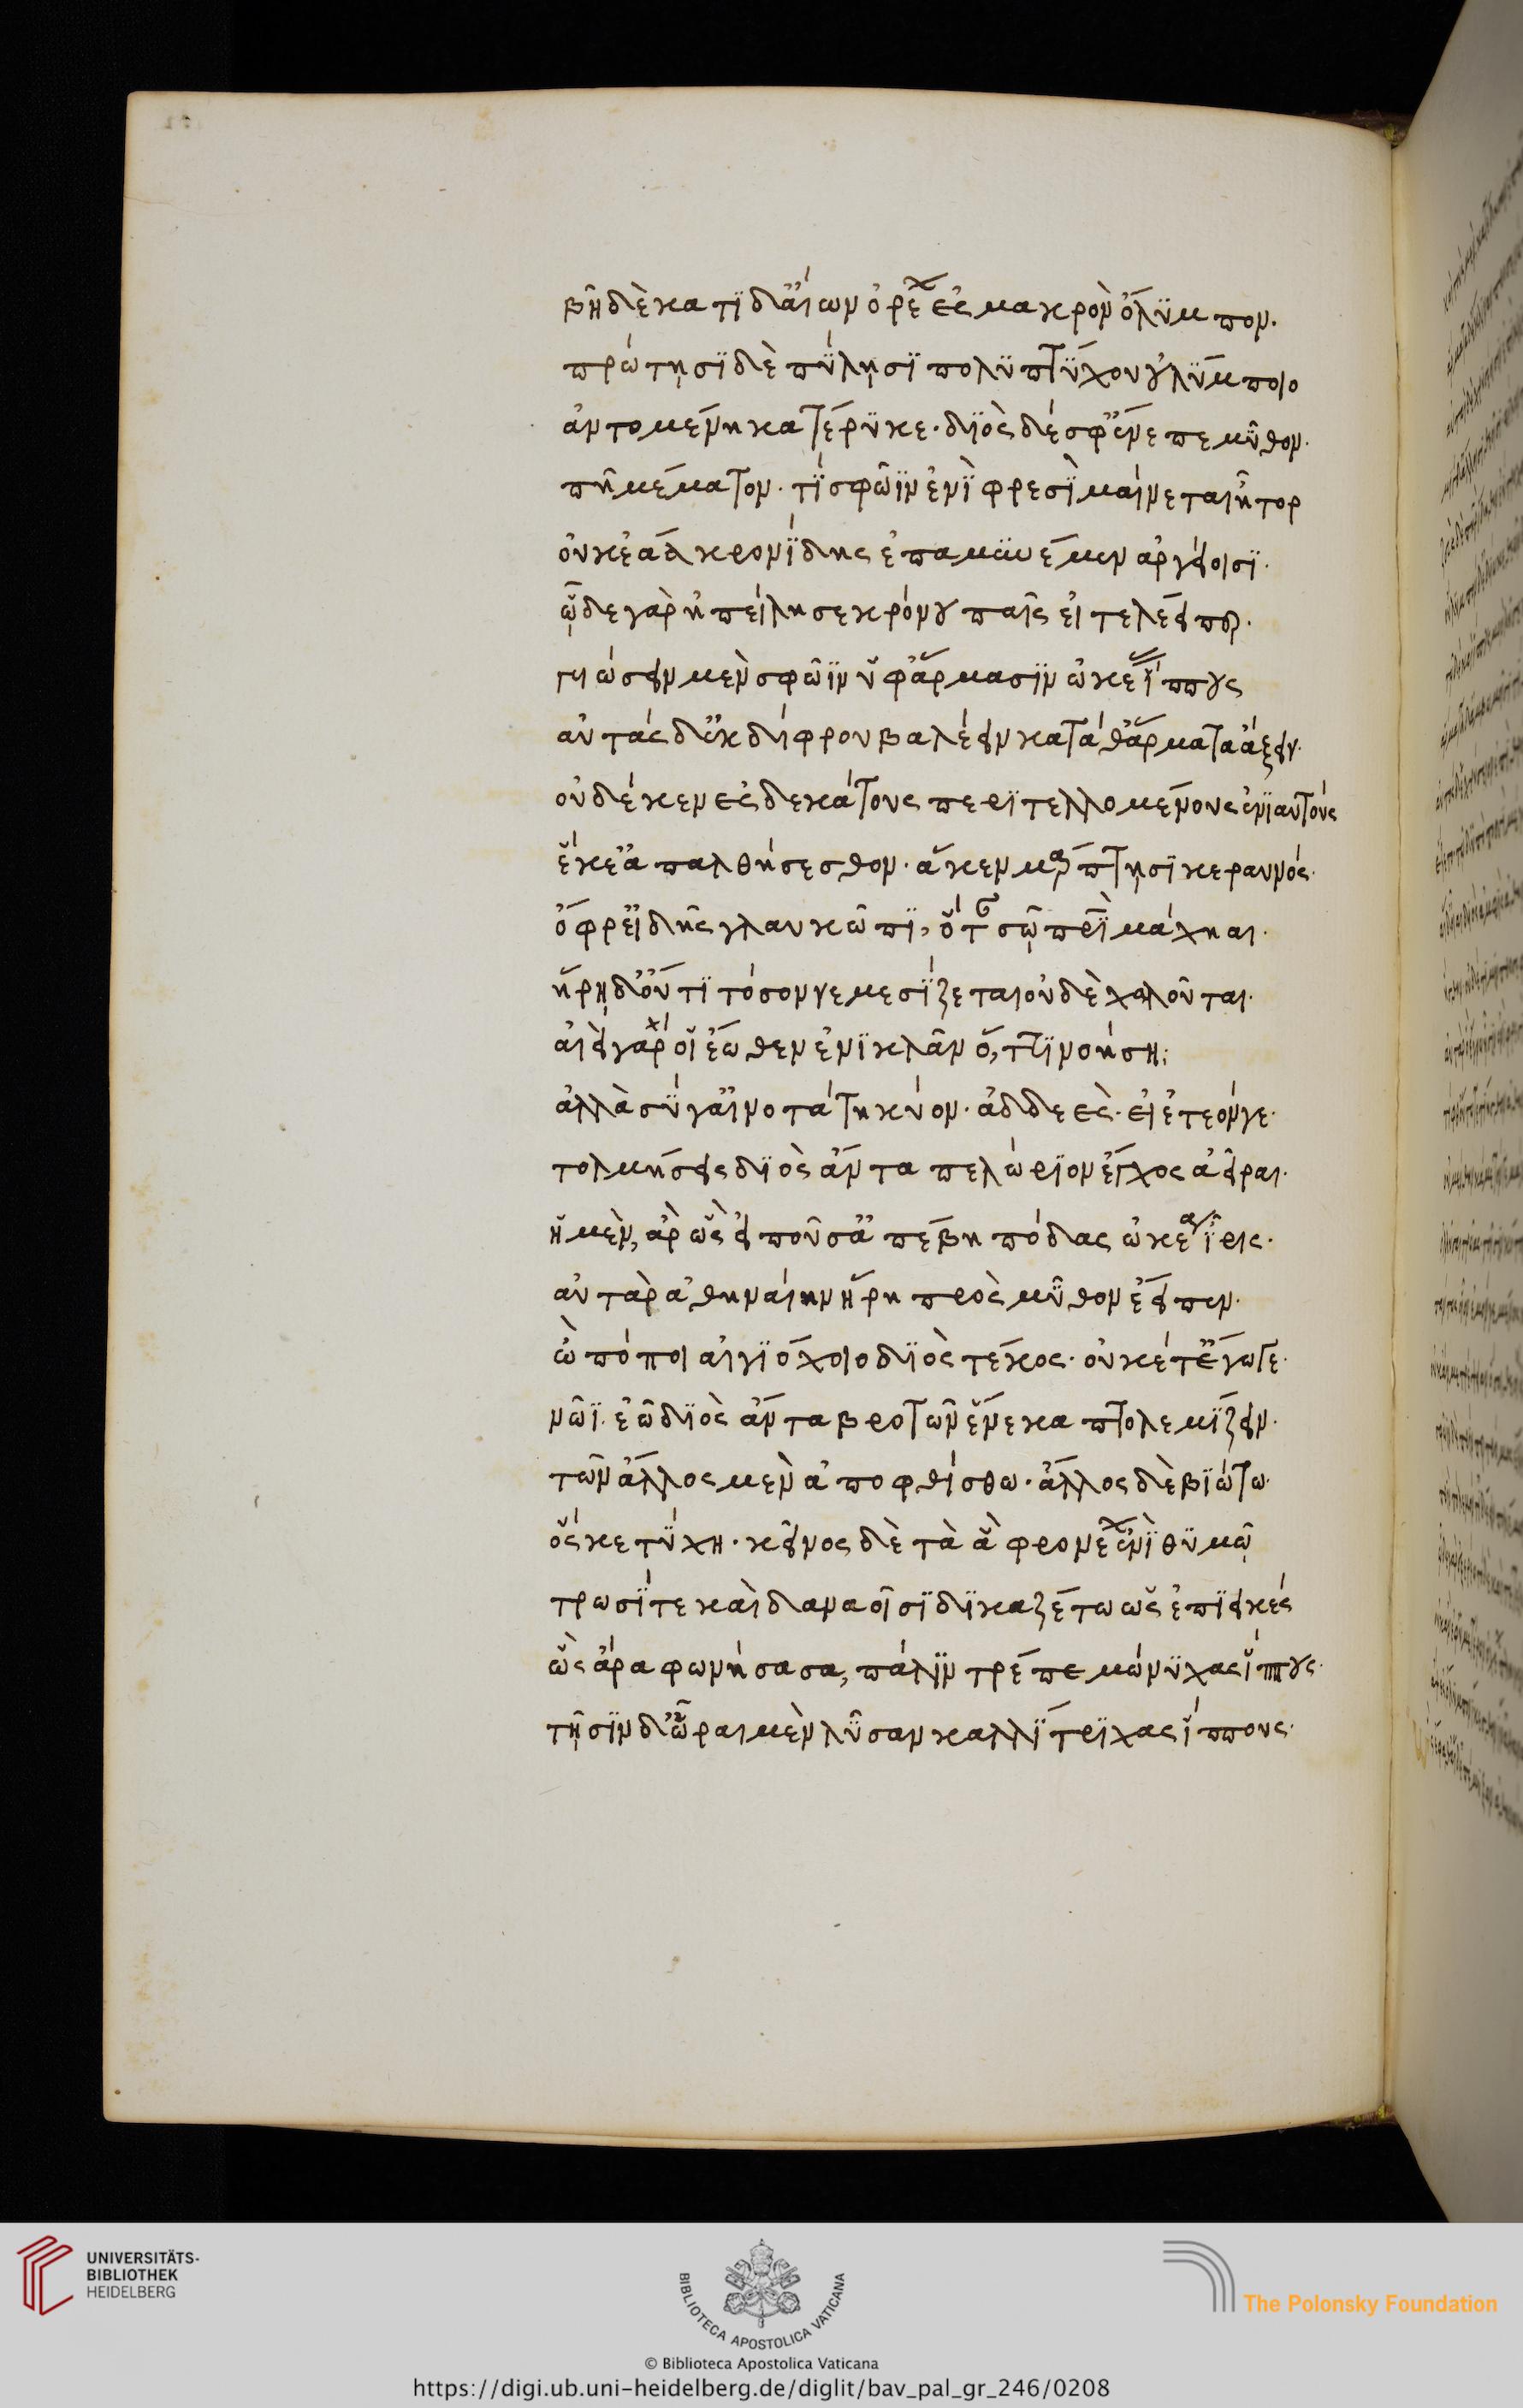 βῆ δὲ κατ ἰδαίων ὀρέων ἐς μακρὸν ὄλυμπον.
πρώτησι δὲ πύλησι πολυπτύχου οὐλύμποιο
ἀντομένη κατέρυκε. διὸς δέ σφ' ἔνεπε μῦθον.
πῆ μέματον. τί σφῶϊν ἐνὶ φρεσὶ μαίνεται ἦτορ
οὐκ ἐάα κρονίδης ἐπαμυνέμεν ἀργείοισι.
ὧδε γὰρ ἠπείλησε κρόνου παῖς εἰ τελέει περ.
γυιώσειν μὲν σφῶϊν ὑφ' ἅρμασιν ὠκέας ἵππους
αὐτὰς δ' ἐκ δίφρου βαλέειν κατά θ' ἅρματα ἄξειν.
οὐδέ κεν ἐς δεκάτους περιτελλομένους ἐνιαυτοὺς
ἕλκε' ἀπαλθήσεσθον. ἅ κεν μάρπτησι κεραυνός.
ὄφρ' εἰδῆς γλαυκῶπι, ὅτ' ἂν σῷ πατρὶ μάχηαι.
ἥρη δ' οὔτι τόσον νεμεσίζεται οὐδὲ χολοῦται.
αἰεὶ γάρ οἱ ἔωθεν ἐνικλᾶν ὅ,ττι νοήση.
ἀλλὰ σύ γ' αἰνοτάτη κύον. ἀδδεές. εἰ ἐτεόν γε.
τολμήσεις διὸς ἄντα πελώριον ἔγχος ἀεῖραι.
ἡ μὲν, ἄρ ὣς εἰποῦσ' ἀπέβη πόδας ὠκέα ἶρις.
αὐτὰρ ἀθηναίην ἥρη πρὸς μῦθον ἔειπεν.
ὢ πόποι αἰγιόχοιο διὸς τέκος. οὐκέτ' ἔγωγε.
νῶϊ. ἐῶ διὸς ἄντα βροτῶν ἕνεκα πτολεμίζειν.
τῶν ἄλλος μὲν ἀποφθίσθω. ἄλλος δὲ βιώτω.
ὅς κε τύχη. κεῖνος δὲ τὰ ἃ φρονέων ἐνὶ θυμῷ
τρωσί τε καὶ δαναοῖσι δικαζέτω ὡς ἐπιεικές
ὣς ἄρα φωνήσασα, πάλιν τρέπε μώνυχας ἵππους.
τῆσιν δ' ὧραι μὲν λῦσαν καλλίτριχας ἵππους.
UNIVERSITÄTS-
BIBLIOTHEK
HEIDELBERG
BIBLIOTECA APOSTOLICA VATICANA
The Polonsky Foundation
© Biblioteca Apostolica Vaticana
https://digi.ub.uni-heidelberg.de/diglit/bav_pal_gr_246/0208